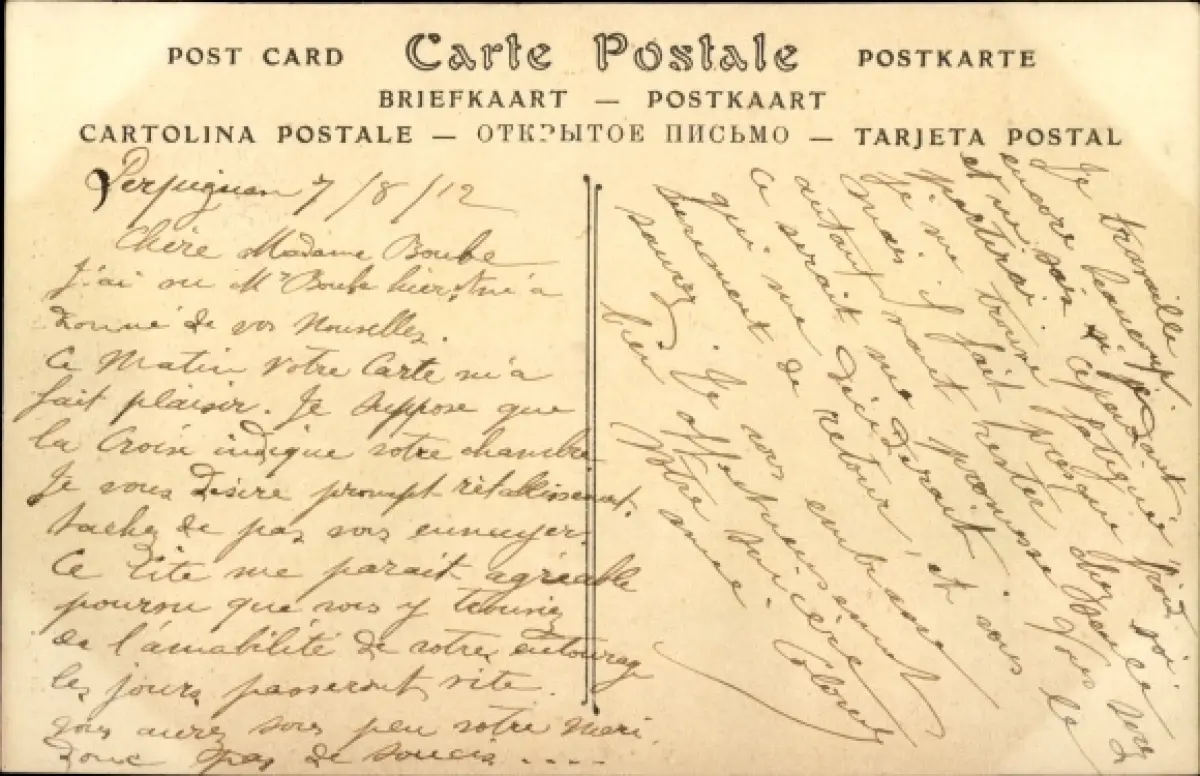 POST CARD Carte Postale POSTKARTE
BRIEFKAART — POSTKAART
CARTOLINA POSTALE — ОТКРЫТОЕ ПИСЬМО — TARJETA POSTAL
Perpignan 7/8/12
Chère Madame Boube
J'ai vu Mr Boube hier, m'a
donné de vos Nouvelles.
Ce Matin Votre Carte m'a
fait plaisir. Je suppose que
la Croix indique votre chambre
Je vous désire prompt rétablissement.
tachez de pas vous ennuyer.
Ce site me parait agréable
pourvu que vous y trouviez
de l'amabilité de votre entourage
les jours passeront vite.
vous aurez sous peu votre Mari.
Donc pas de soucis....
Je travaille
encore beaucoup.
et ne sais si je
partirai. cependant
je me trouve fatiguée
mais il fait presque froid
autant vaut rester chez soi.
Ce serait une promesse
qui me dirait et vous
de retour, vous le
savez bien
Je vous embrasse
affectueusement
Votre sincère
amie